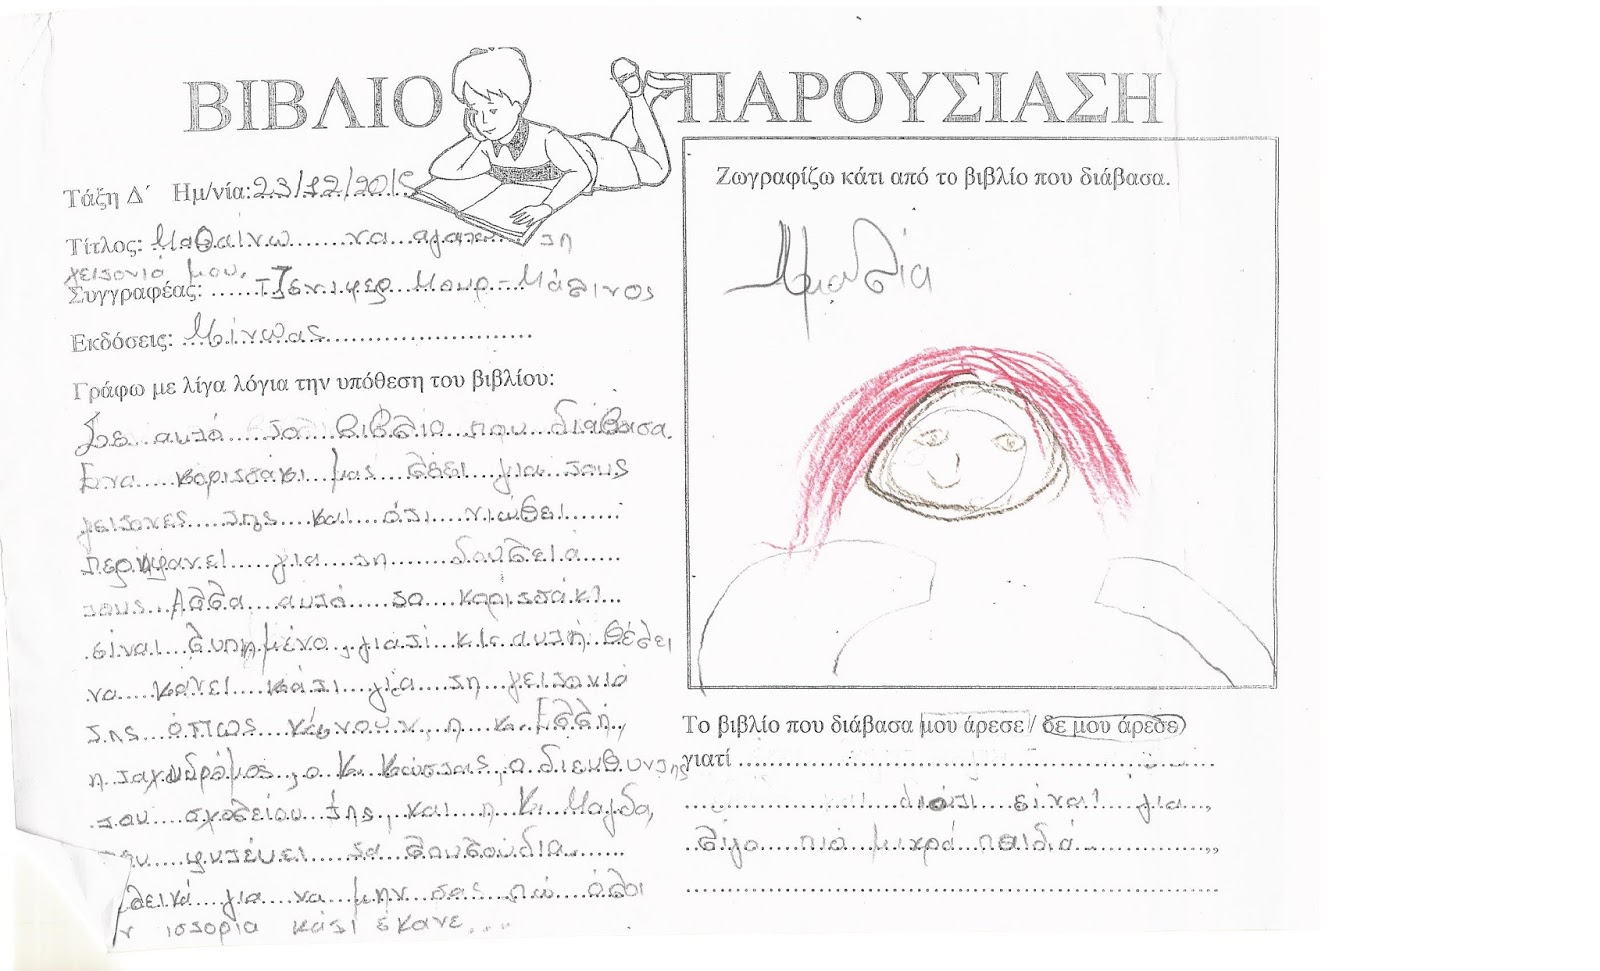 ΒΙΒΛΙΟ ΠΑΡΟΥΣΙΑΣΗ
Τάξη Δ΄ Ημ/νία: 23/12/2015
Τίτλος: Μαθαίνω να αγαπώ τη
γειτονιά μου.
Συγγραφέας: Τζένιφερ Μουρ-Μάλινος
Εκδόσεις: Μίνωας
Γράφω με λίγα λόγια την υπόθεση του βιβλίου:
Σε αυτό το βιβλίο που διάβασα.
Ενα κοριτσάκι μας λέει για τους
γείτονες της και ότι νιώθει
περηφανει για τη δουλειά
τους. Αλλα αυτό το κοριτσάκι
είναι λυπημένο, γιατί κι αυτή θέλει
να κάνει κάτι για τη γειτονιά
της όπως κάνουν, η κ. Έλλη,
η ταχυδρόμος, ο κ. Κώστας, ο διευθυντης
του σχολείου της, και η κ. Μαγδα,
φυτέυει τα λουλούδια.
για να μην σας πω όλη
ιστορία κάτι έκανε...
Ζωγραφίζω κάτι από το βιβλίο που διάβασα.
Αμαλία
Το βιβλίο που διάβασα μου άρεσε / δε μου άρεσε
γιατί
διότι είναι για
λίγο πιό μικρά παιδιά